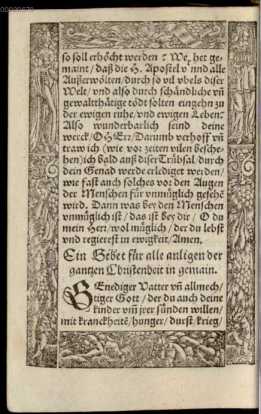 so soll erhöcht werden? We, het ge-
maint / daß die H. Apostel vnnd alle
Außerwölten / durch so vil vbels diser
Welt / vnd also durch schändliche vñ
gewaltthätige tödt solten eingehn zu
der ewigen ruhe / vnd ewigen Leben?
Also wunderbarlich seind deine
werck / O HErr / Darumb verhoff vñ
traw ich (wie vor zeiten vilen besche-
hen) ich bald auß diser Trübsal / durch
dein Genad werde erlediget werden /
wie fast auch solches vor den Augen
der Menschen für vnmüglich gesehẽ
wird. Dann was bey den Menschen
vnmüglich ist / das ist bey dir / O du
mein Herr / wol müglich / der du lebst
vnd regierest in ewigkeit / Amen.
Ein Gebet für alle anligen der
gantzen Christenheit in gemain.
GEnediger Vatter vñ allmech-
tiger Gott / der du auch deine
kinder vm̃ jrer sünden willen /
mit kranckheitẽ / hunger / durst / krieg /